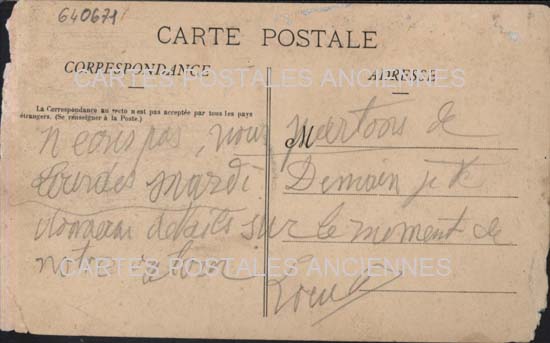 640671
CARTE POSTALE
CORRESPONDANCE
ADRESSE
La Correspondance au recto n'est pas acceptée par tous les pays
étrangers. (Se renseigner à la Poste.)
M
n'écris pas, nous partons de
Lourdes mardi Demain je te
donnerai détails sur le moment de
notre retour
CARTES POSTALES ANCIENNES
CARTES POSTALES ANCIENNES